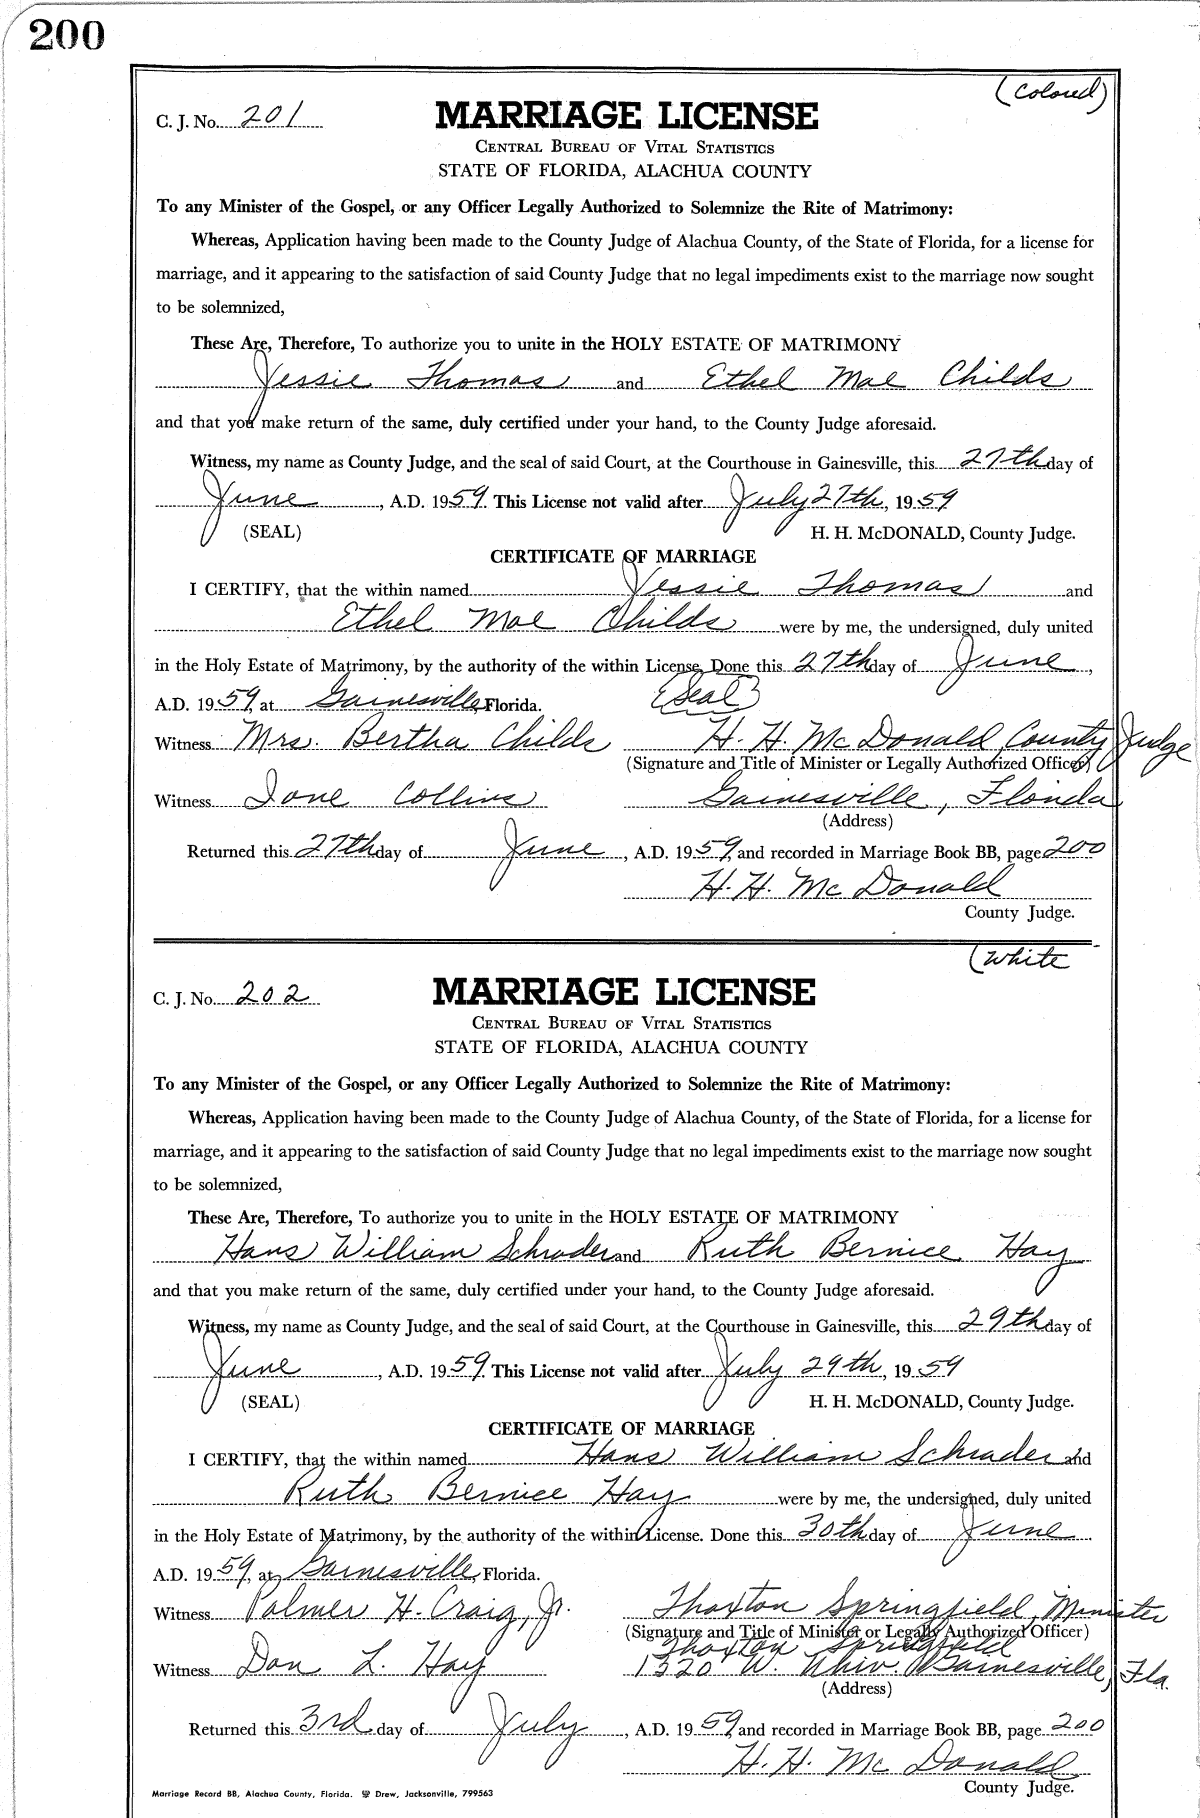 200
(Colored)
C. J. No. 201
MARRIAGE LICENSE
CENTRAL BUREAU OF VITAL STATISTICS
STATE OF FLORIDA, ALACHUA COUNTY
To any Minister of the Gospel, or any Officer Legally Authorized to Solemnize the Rite of Matrimony:
Whereas, Application having been made to the County Judge of Alachua County, of the State of Florida, for a license for
marriage, and it appearing to the satisfaction of said County Judge that no legal impediments exist to the marriage now sought
to be solemnized,
These Are, Therefore, To authorize you to unite in the HOLY ESTATE OF MATRIMONY
Jessie Thomas and Ethel Mae Childs
and that you make return of the same, duly certified under your hand, to the County Judge aforesaid.
Witness, my name as County Judge, and the seal of said Court, at the Courthouse in Gainesville, this 27th day of
June, A.D. 1959. This License not valid after July 27th, 1959
(SEAL) H. H. McDONALD, County Judge.
CERTIFICATE OF MARRIAGE
I CERTIFY, that the within named Jessie Thomas and
Ethel Mae Childs were by me, the undersigned, duly united
in the Holy Estate of Matrimony, by the authority of the within License. Done this 27th day of June,
A.D. 1959, at Gainesville, Florida. (Seal)
Witness Mrs. Bertha Childs H. H. McDonald, County Judge
(Signature and Title of Minister or Legally Authorized Officer)
Witness Ione Collins Gainesville, Florida
(Address)
Returned this 27th day of June, A.D. 1959, and recorded in Marriage Book BB, page 200
H. H. McDonald
County Judge.
(White
C. J. No. 202
MARRIAGE LICENSE
CENTRAL BUREAU OF VITAL STATISTICS
STATE OF FLORIDA, ALACHUA COUNTY
To any Minister of the Gospel, or any Officer Legally Authorized to Solemnize the Rite of Matrimony:
Whereas, Application having been made to the County Judge of Alachua County, of the State of Florida, for a license for
marriage, and it appearing to the satisfaction of said County Judge that no legal impediments exist to the marriage now sought
to be solemnized,
These Are, Therefore, To authorize you to unite in the HOLY ESTATE OF MATRIMONY
Hans William Schrader and Ruth Bernice Hay
and that you make return of the same, duly certified under your hand, to the County Judge aforesaid.
Witness, my name as County Judge, and the seal of said Court, at the Courthouse in Gainesville, this 29th day of
June, A.D. 1959. This License not valid after July 29th, 1959
(SEAL) H. H. McDONALD, County Judge.
CERTIFICATE OF MARRIAGE
I CERTIFY, that the within named Hans William Schrader and
Ruth Bernice Hay were by me, the undersigned, duly united
in the Holy Estate of Matrimony, by the authority of the within License. Done this 30th day of June
A.D. 1959, at Gainesville, Florida.
Witness Palmer H. Craig, Jr. Thaxton Springfield, Minister
(Signature and Title of Minister or Legally Authorized Officer)
Thaxton Springfield
Witness Don L. Hay 1320 W. Univ. Gainesville, Fla.
(Address)
Returned this 3rd day of July, A.D. 1959, and recorded in Marriage Book BB, page 200
H. H. McDonald
County Judge.
Marriage Record BB, Alachua County, Florida. Drew, Jacksonville, 799563